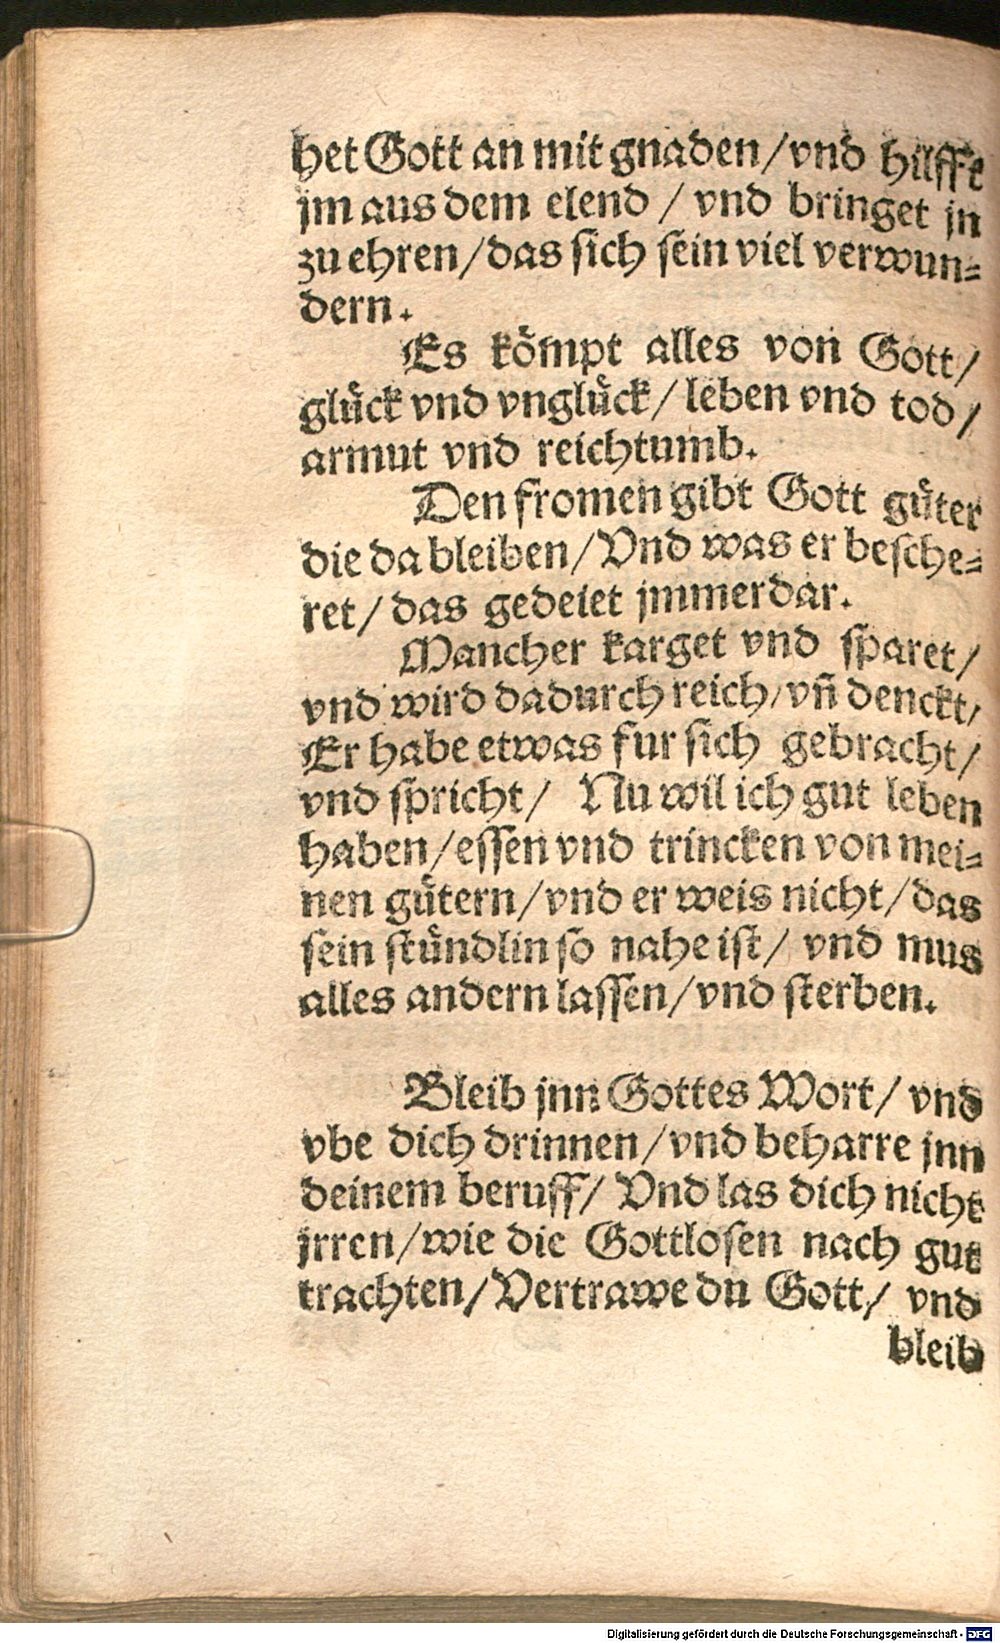 het Gott an mit gnaden / vnd hilfft
jm aus dem elend / vnd bringet jn
zu ehren / das sich sein viel verwun⸗
dern.
Es kömpt alles von Gott /
glück vnd vnglück / leben vnd tod /
armut vnd reichtumb.
Den fromen gibt Gott güter
die da bleiben / Vnd was er besche⸗
ret / das gedeiet jmmerdar.
Mancher karget vnd sparet /
vnd wird dadurch reich / vñ denckt /
Er habe etwas fur sich gebracht /
vnd spricht / Nu wil ich gut leben
haben / essen vnd trincken von mei⸗
nen gütern / vnd er weis nicht / das
sein stündlin so nahe ist / vnd mus
alles andern lassen / vnd sterben.
Bleib jnn Gottes Wort / vnd
vbe dich drinnen / vnd beharre jnn
deinem beruff / Vnd las dich nicht
jrren / wie die Gottlosen nach gut
trachten / Vertrawe du Gott / vnd
bleib
Digitalisierung gefördert durch die Deutsche Forschungsgemeinschaft - DFG